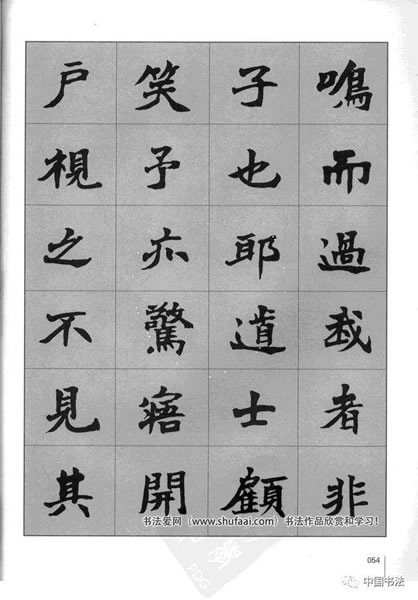 鳴而過我者非
子也耶道士顧
笑予亦驚寤開
戶視之不見其
书法爱网（www.shufaai.com）书法作品欣赏和学习！
054
中国书法
PDG